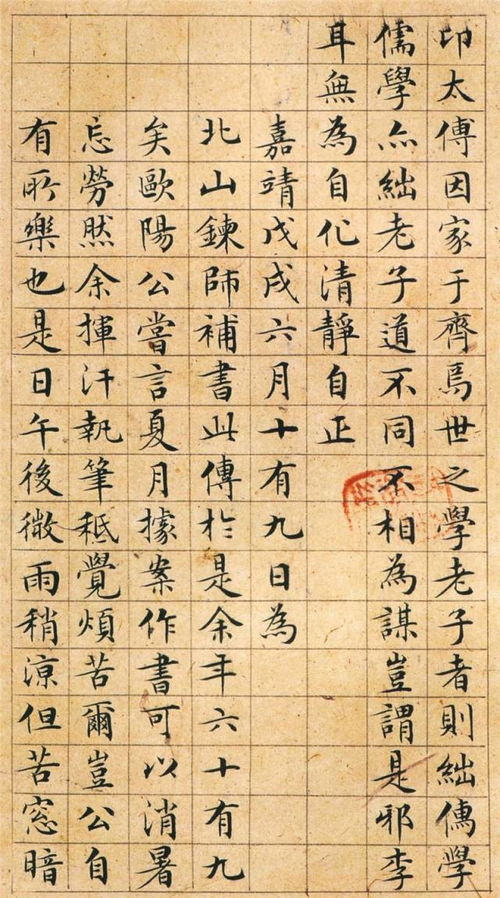 卬太傅因家于齊焉世之學老子者則絀傳學
儒學亦絀老子道不同不相為謀豈謂是邪李
耳無為自化清靜自正
嘉靖戊戌六月十有九日為
北山鍊師補書此傳於是余年六十有九
矣歐陽公嘗言夏月據案作書可以消暑
忘勞然余揮汗執筆秪覺煩苦爾豈公自
有所樂也是日午後微雨稍凉但苦窓暗